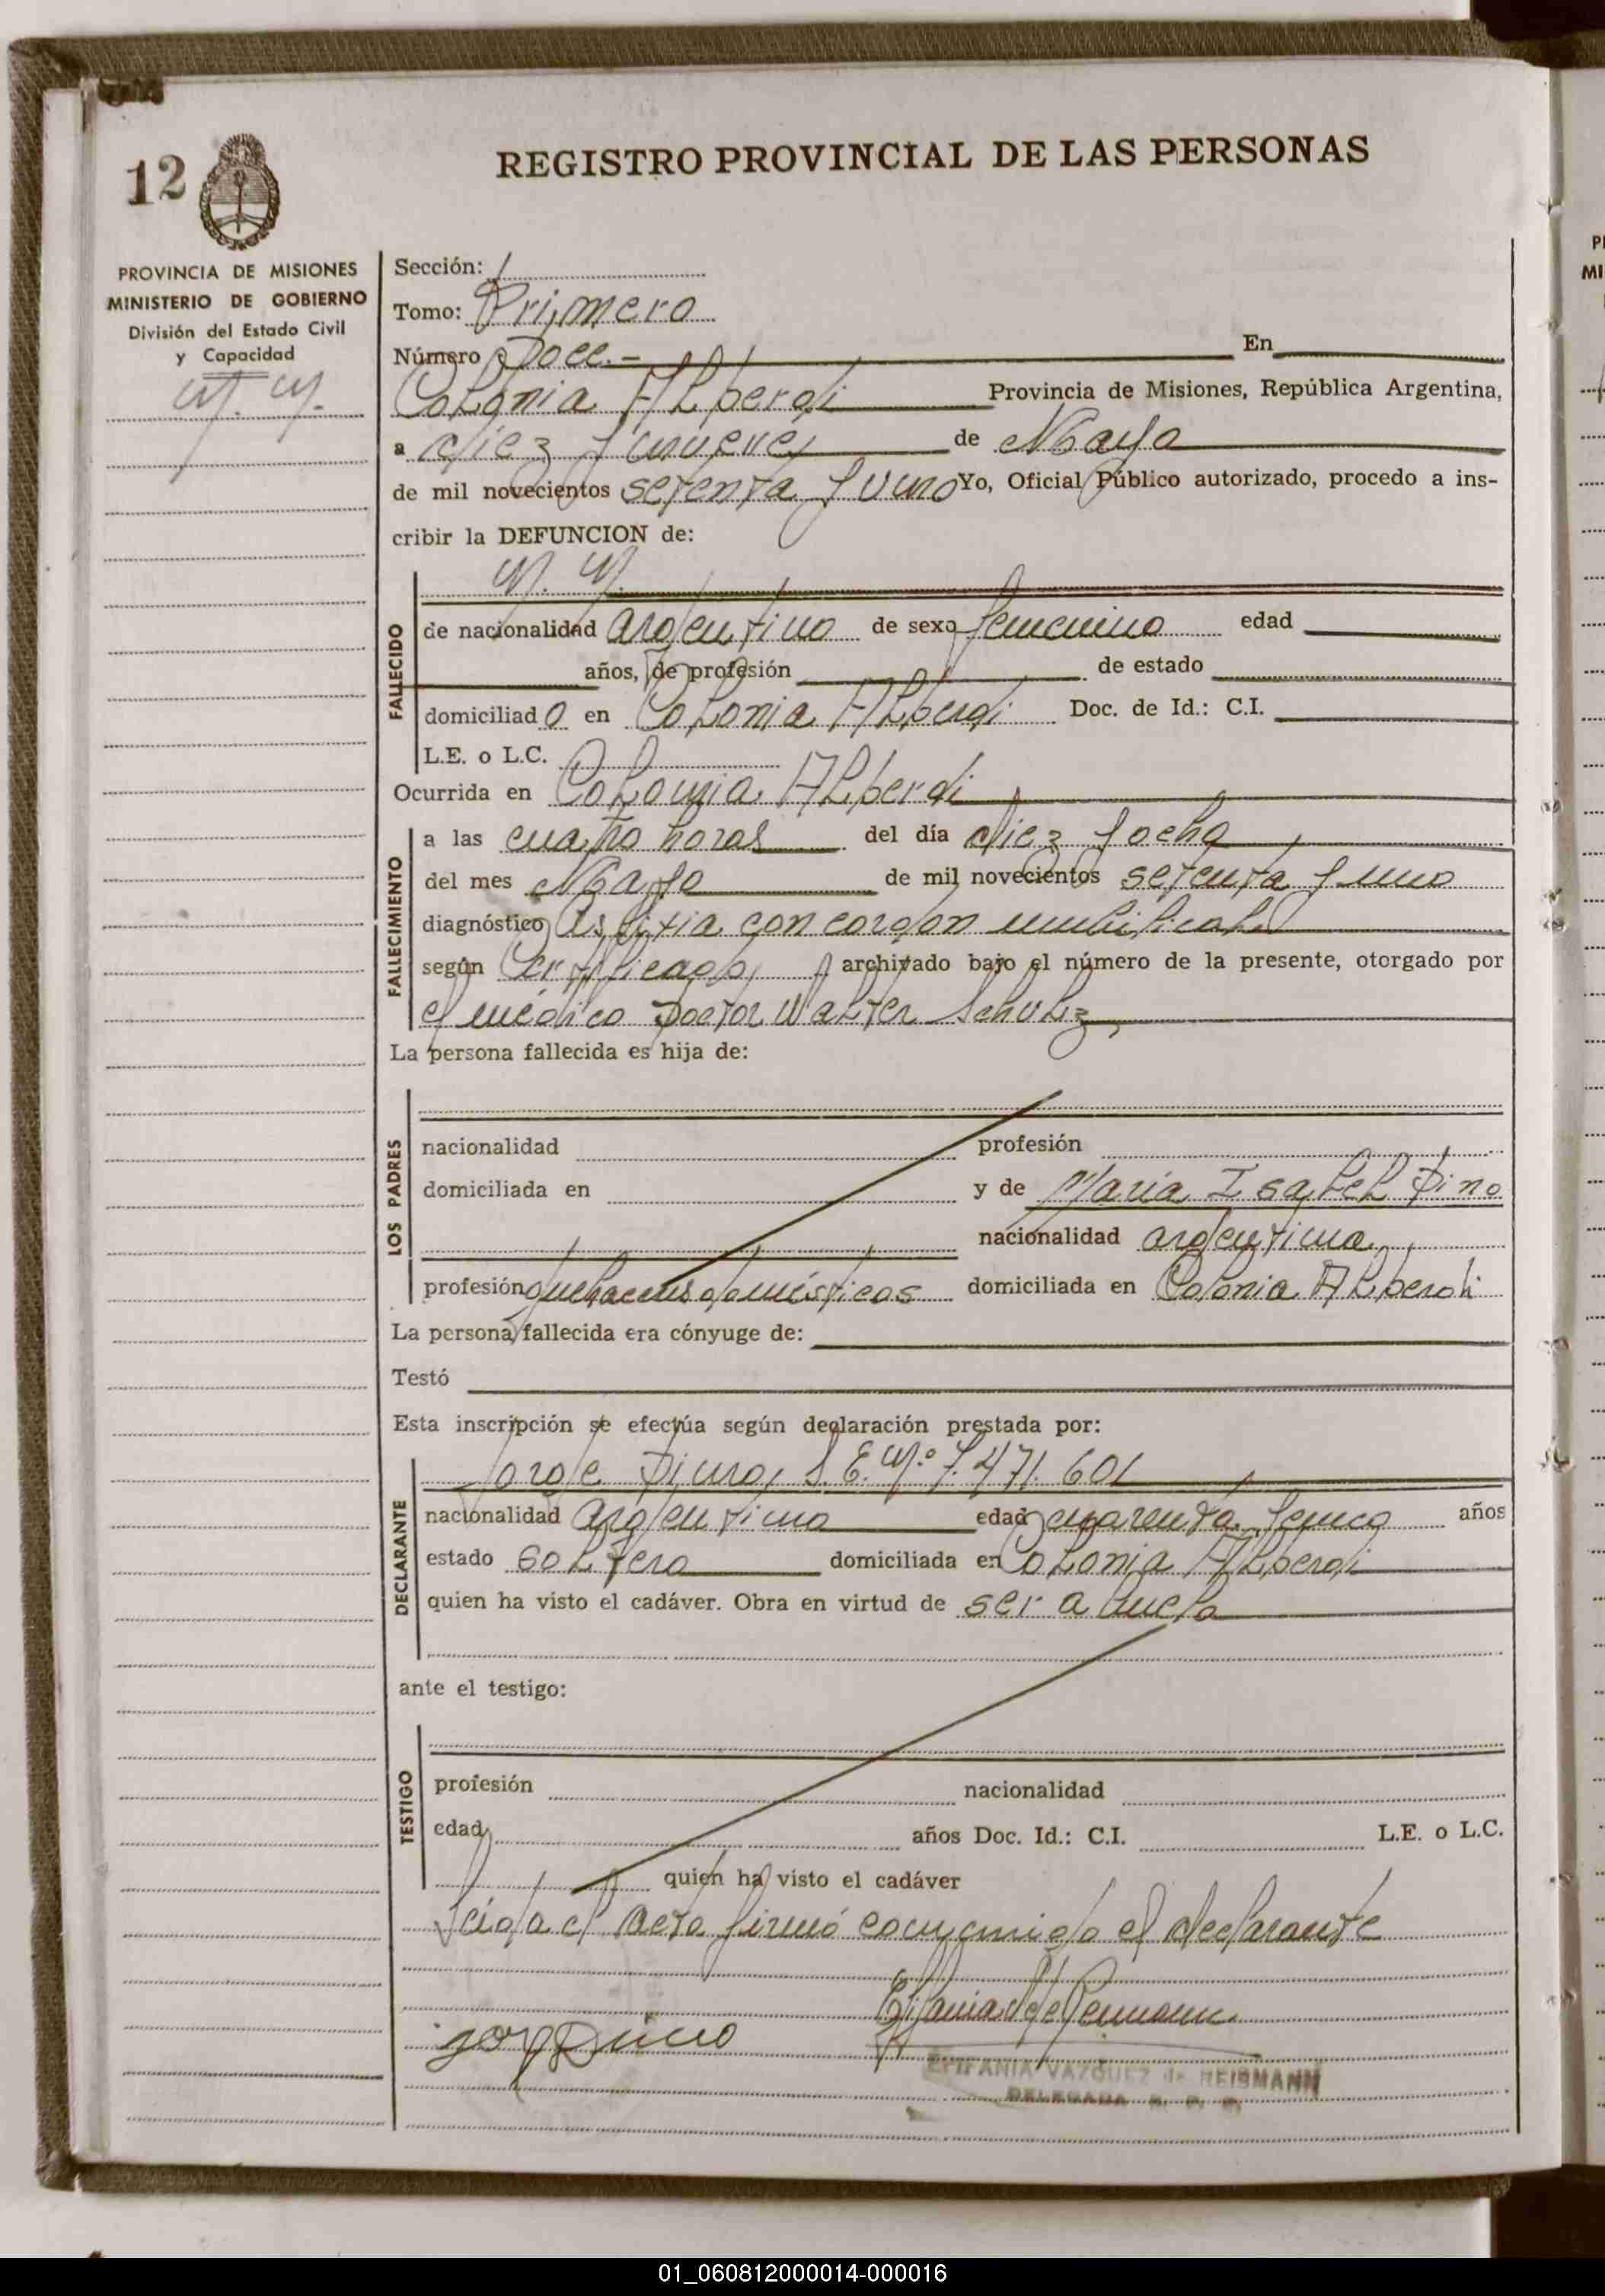 12
REGISTRO PROVINCIAL DE LAS PERSONAS
PROVINCIA DE MISIONES
MINISTERIO DE GOBIERNO
División del Estado Civil
y Capacidad
N. N.
Sección: 1
Tomo: Primero
Número Doce.- En
Colonia Alberdi Provincia de Misiones, República Argentina,
a diez y nueve de Mayo
de mil novecientos setenta y uno Yo, Oficial Público autorizado, procedo a ins-
cribir la DEFUNCION de:
N. N.
FALLECIDO
de nacionalidad argentino de sexo femenino edad
años, de profesión de estado
domiciliado en Colonia Alberdi Doc. de Id.: C.I.
L.E. o L.C.
Ocurrida en Colonia Alberdi
FALLECIMIENTO
a las cuatro horas del día diez y ocho
del mes Mayo de mil novecientos setenta y uno
diagnóstico Asfixia con cordon umbilical
según Certificado archivado bajo el número de la presente, otorgado por
el médico Doctor Walter Schulz
La persona fallecida es hija de:
LOS PADRES
nacionalidad profesión
domiciliada en y de María Isabel Dino
nacionalidad argentina
profesión quehaceres domésticos domiciliada en Colonia Alberdi
La persona fallecida era cónyuge de:
Testó
Esta inscripción se efectúa según declaración prestada por:
DECLARANTE
Jorge Dino, L.E. Nº 7.471.601
nacionalidad argentino edad cuarenta y cinco años
estado soltero domiciliada en Colonia Alberdi
quien ha visto el cadáver. Obra en virtud de ser abuelo
ante el testigo:
TESTIGO
profesión nacionalidad
edad años Doc. Id.: C.I. L.E. o L.C.
quien ha visto el cadáver
Leida el acta firmó conmigo el declarante
Dino
EPIFANIA VAZQUEZ de REISMANN
DELEGADA R. P. P.
01_060812000014-000016